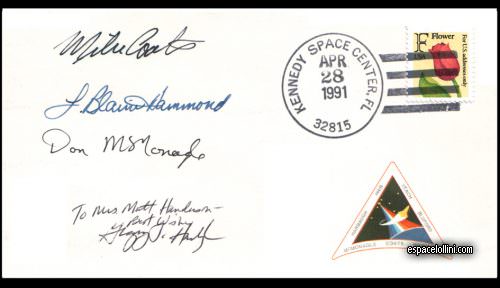 Mike Coats
L. Blaine Hammond
Don McMonagle
To Mrs. Matt Henderson—
Best Wishes
Gregory J. Harbaugh
KENNEDY SPACE CENTER, FL
APR
28
1991
32815
F Flower
For U.S. addresses only
HARBAUGH HIEB VEACH BLUFORD
MCMONAGLE COATS HAMMOND
espacelollini.com